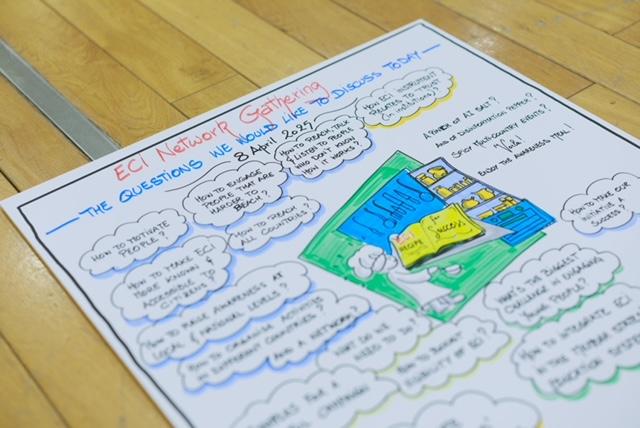 ECI Network Gathering
THE QUESTIONS WE WOULD LIKE TO DISCUSS TODAY
8 April 2025
HOW TO MOTIVATE
PEOPLE?
HOW TO ENGAGE
PEOPLE THAT ARE
HARDER TO
REACH?
HOW TO REACH, TALK
& LISTEN TO PEOPLE
WHO DON'T KNOW
HOW IT WORKS?
HOW ECI INSTRUMENT
RELATES TO TRUST
(in institutions)?
A PINCH OF AI SALT?
AND OF DISINFORMATION PEPPER?
SPICY MULTI-COUNTRY EVENTS?
Voilà!
ENJOY THE AWARENESS MEAL!
HOW TO MAKE ECI
MORE KNOWN &
ACCESSIBLE TO
CITIZENS?
HOW TO REACH
ALL COUNTRIES?
RECIPE
for
Success
HOW TO MAKE OUR
INITIATIVE A
SUCCESS?
HOW TO RAISE AWARENESS AT
LOCAL & NATIONAL LEVELS?
HOW TO ORGANISE ACTIVITIES
IN DIFFERENT COUNTRIES?
AND A NETWORK?
WHAT DO WE
NEED TO DO?
HOW TO BOOST
VISIBILITY OF ECI?
WHAT'S THE BIGGEST
CHALLENGE IN ENGAGING
YOUNG PEOPLE?
HOW TO INTEGRATE ECI
IN THE MEMBER STATES
EDUCATION SYSTEM
EXAMPLES FOR A
CAMPAIGN